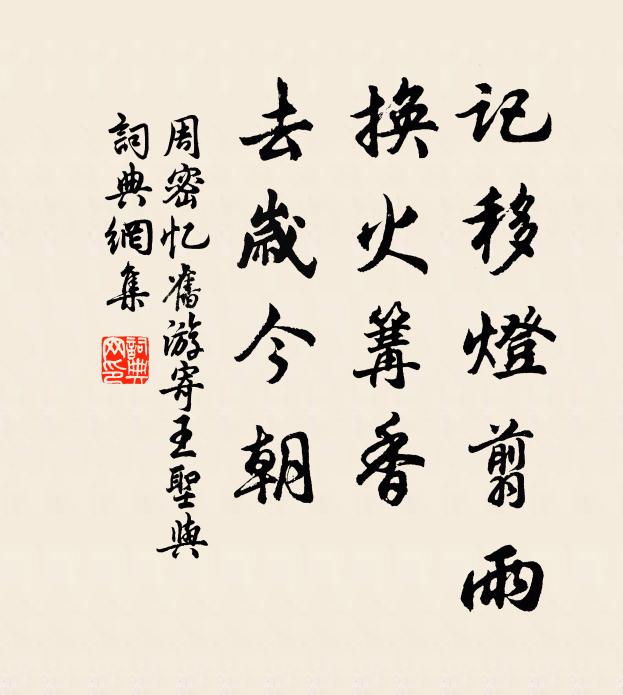 記移燈翦雨
換火篝香
去歲今朝
周密忆舊游寄王聖與
詞典網集
詞典網印